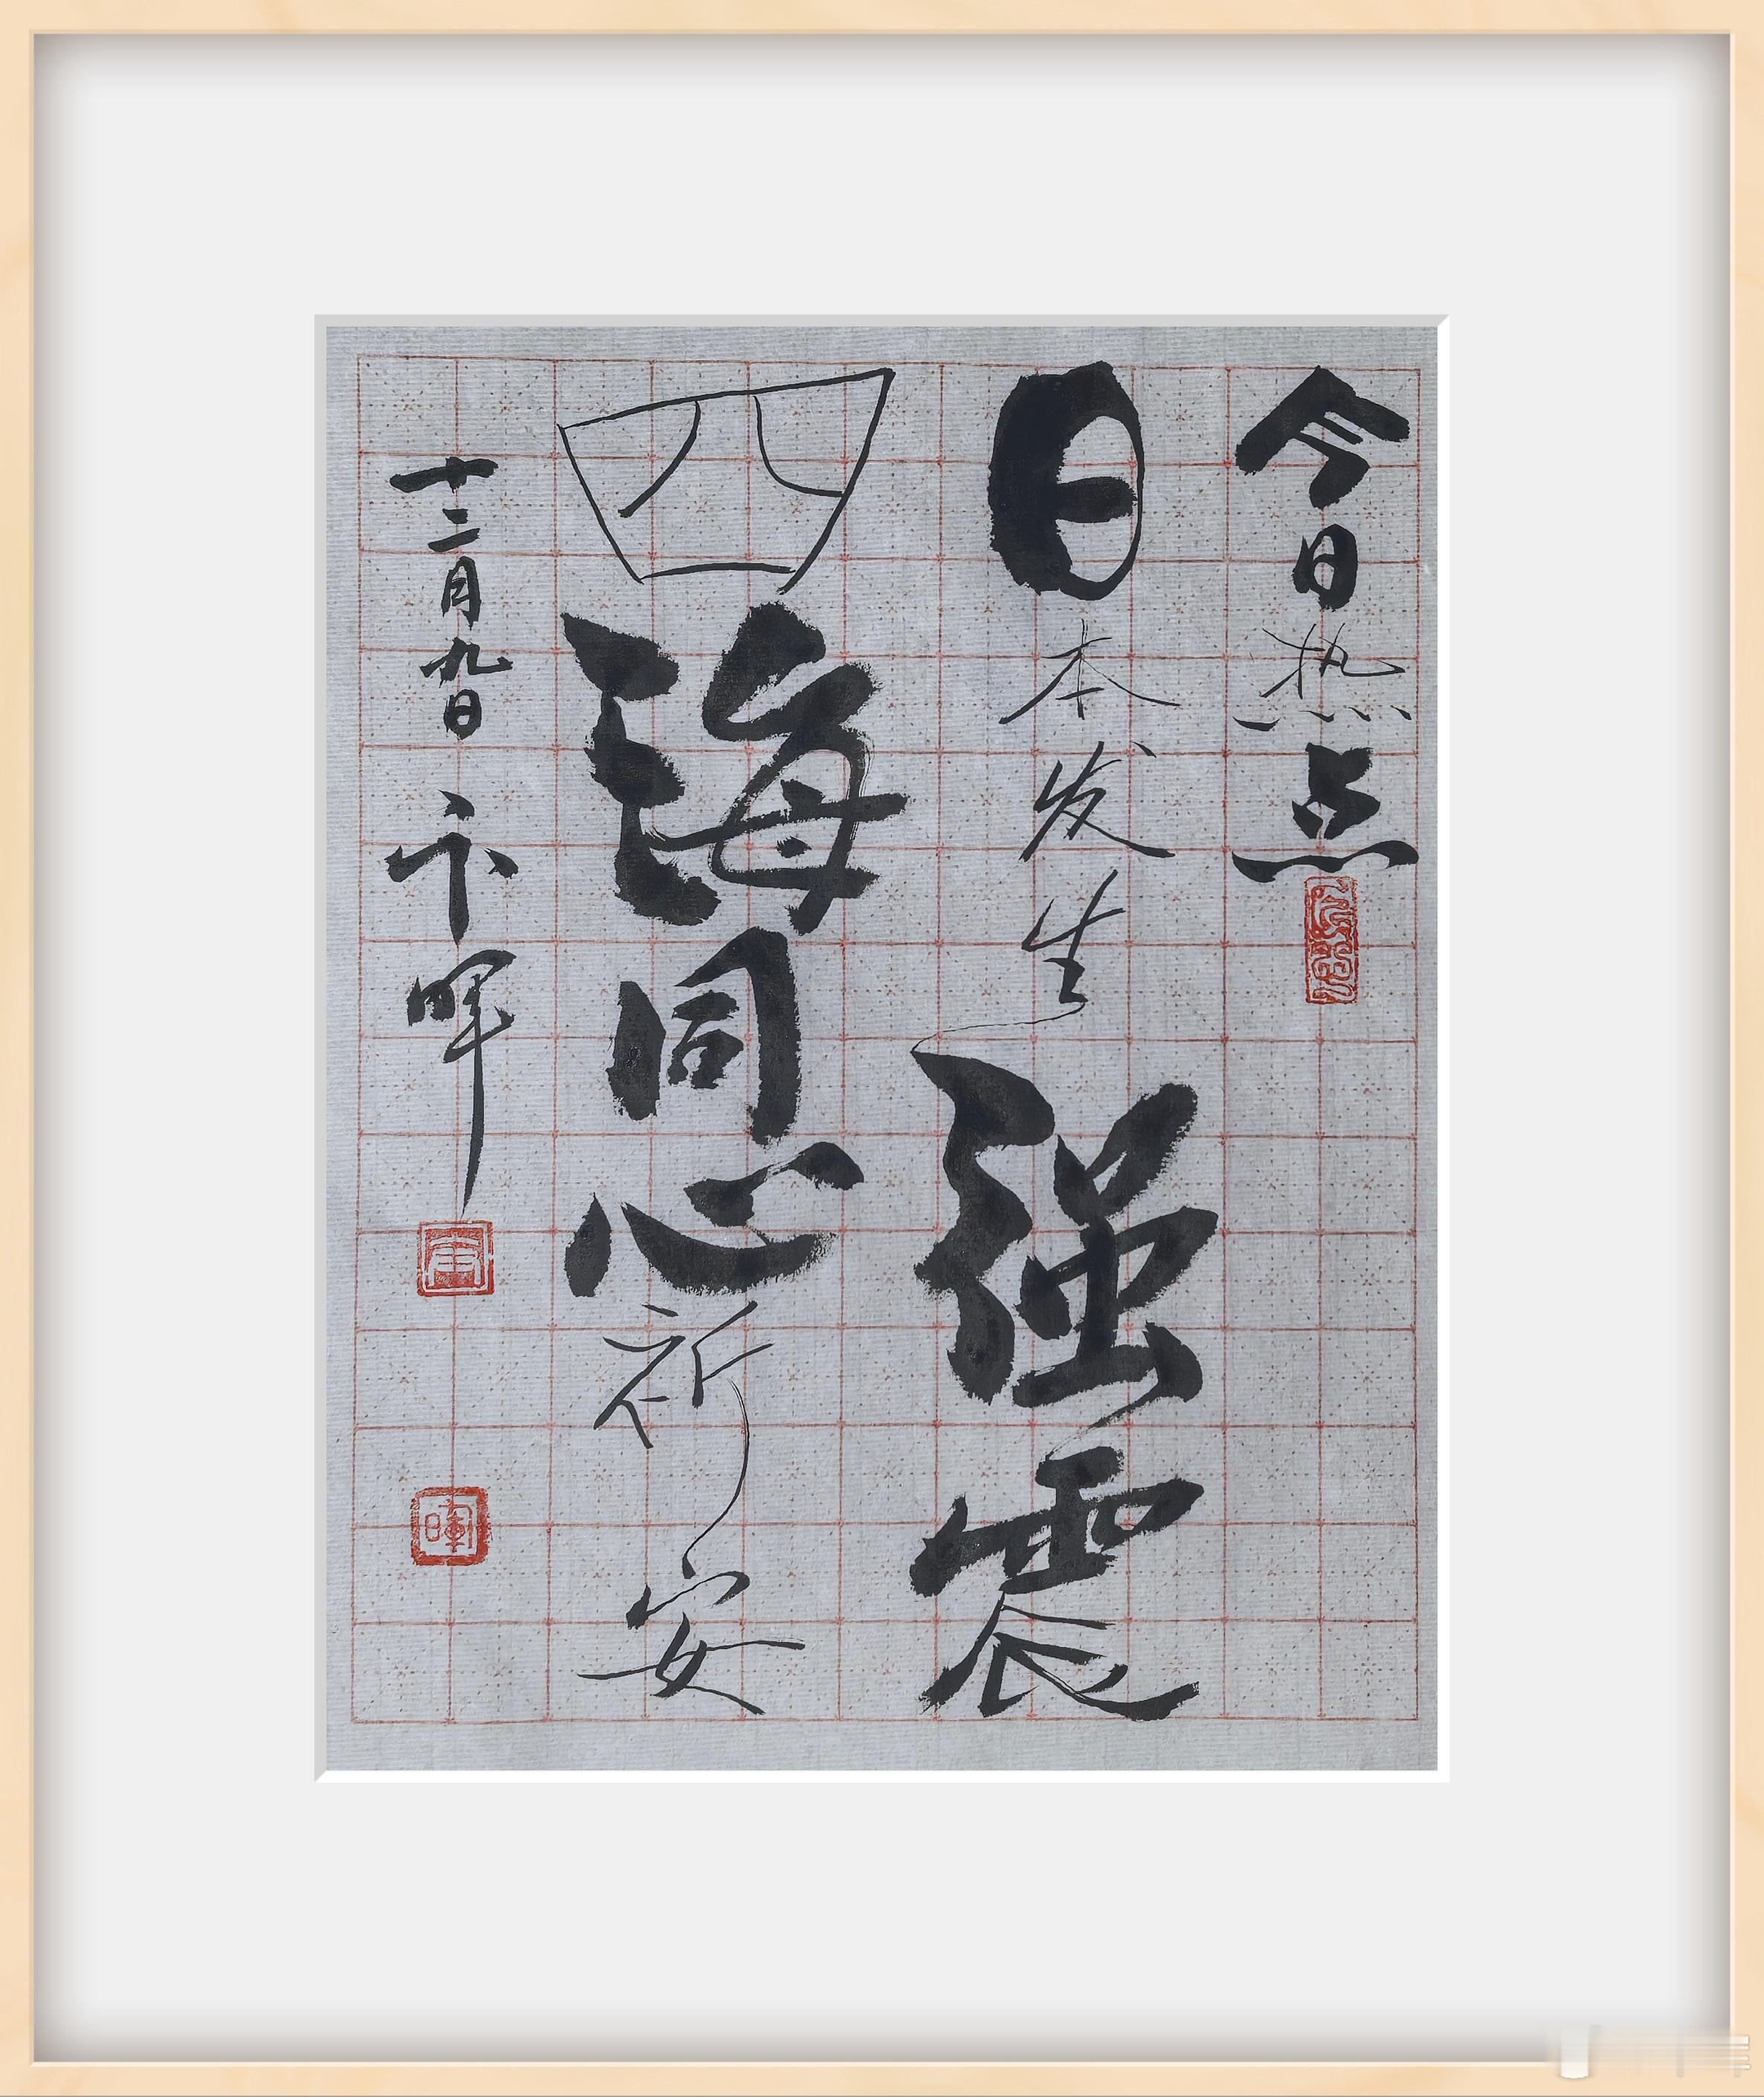 今日热点
日本发生强震
四海同心祈安
十二月九日卞晖
暉